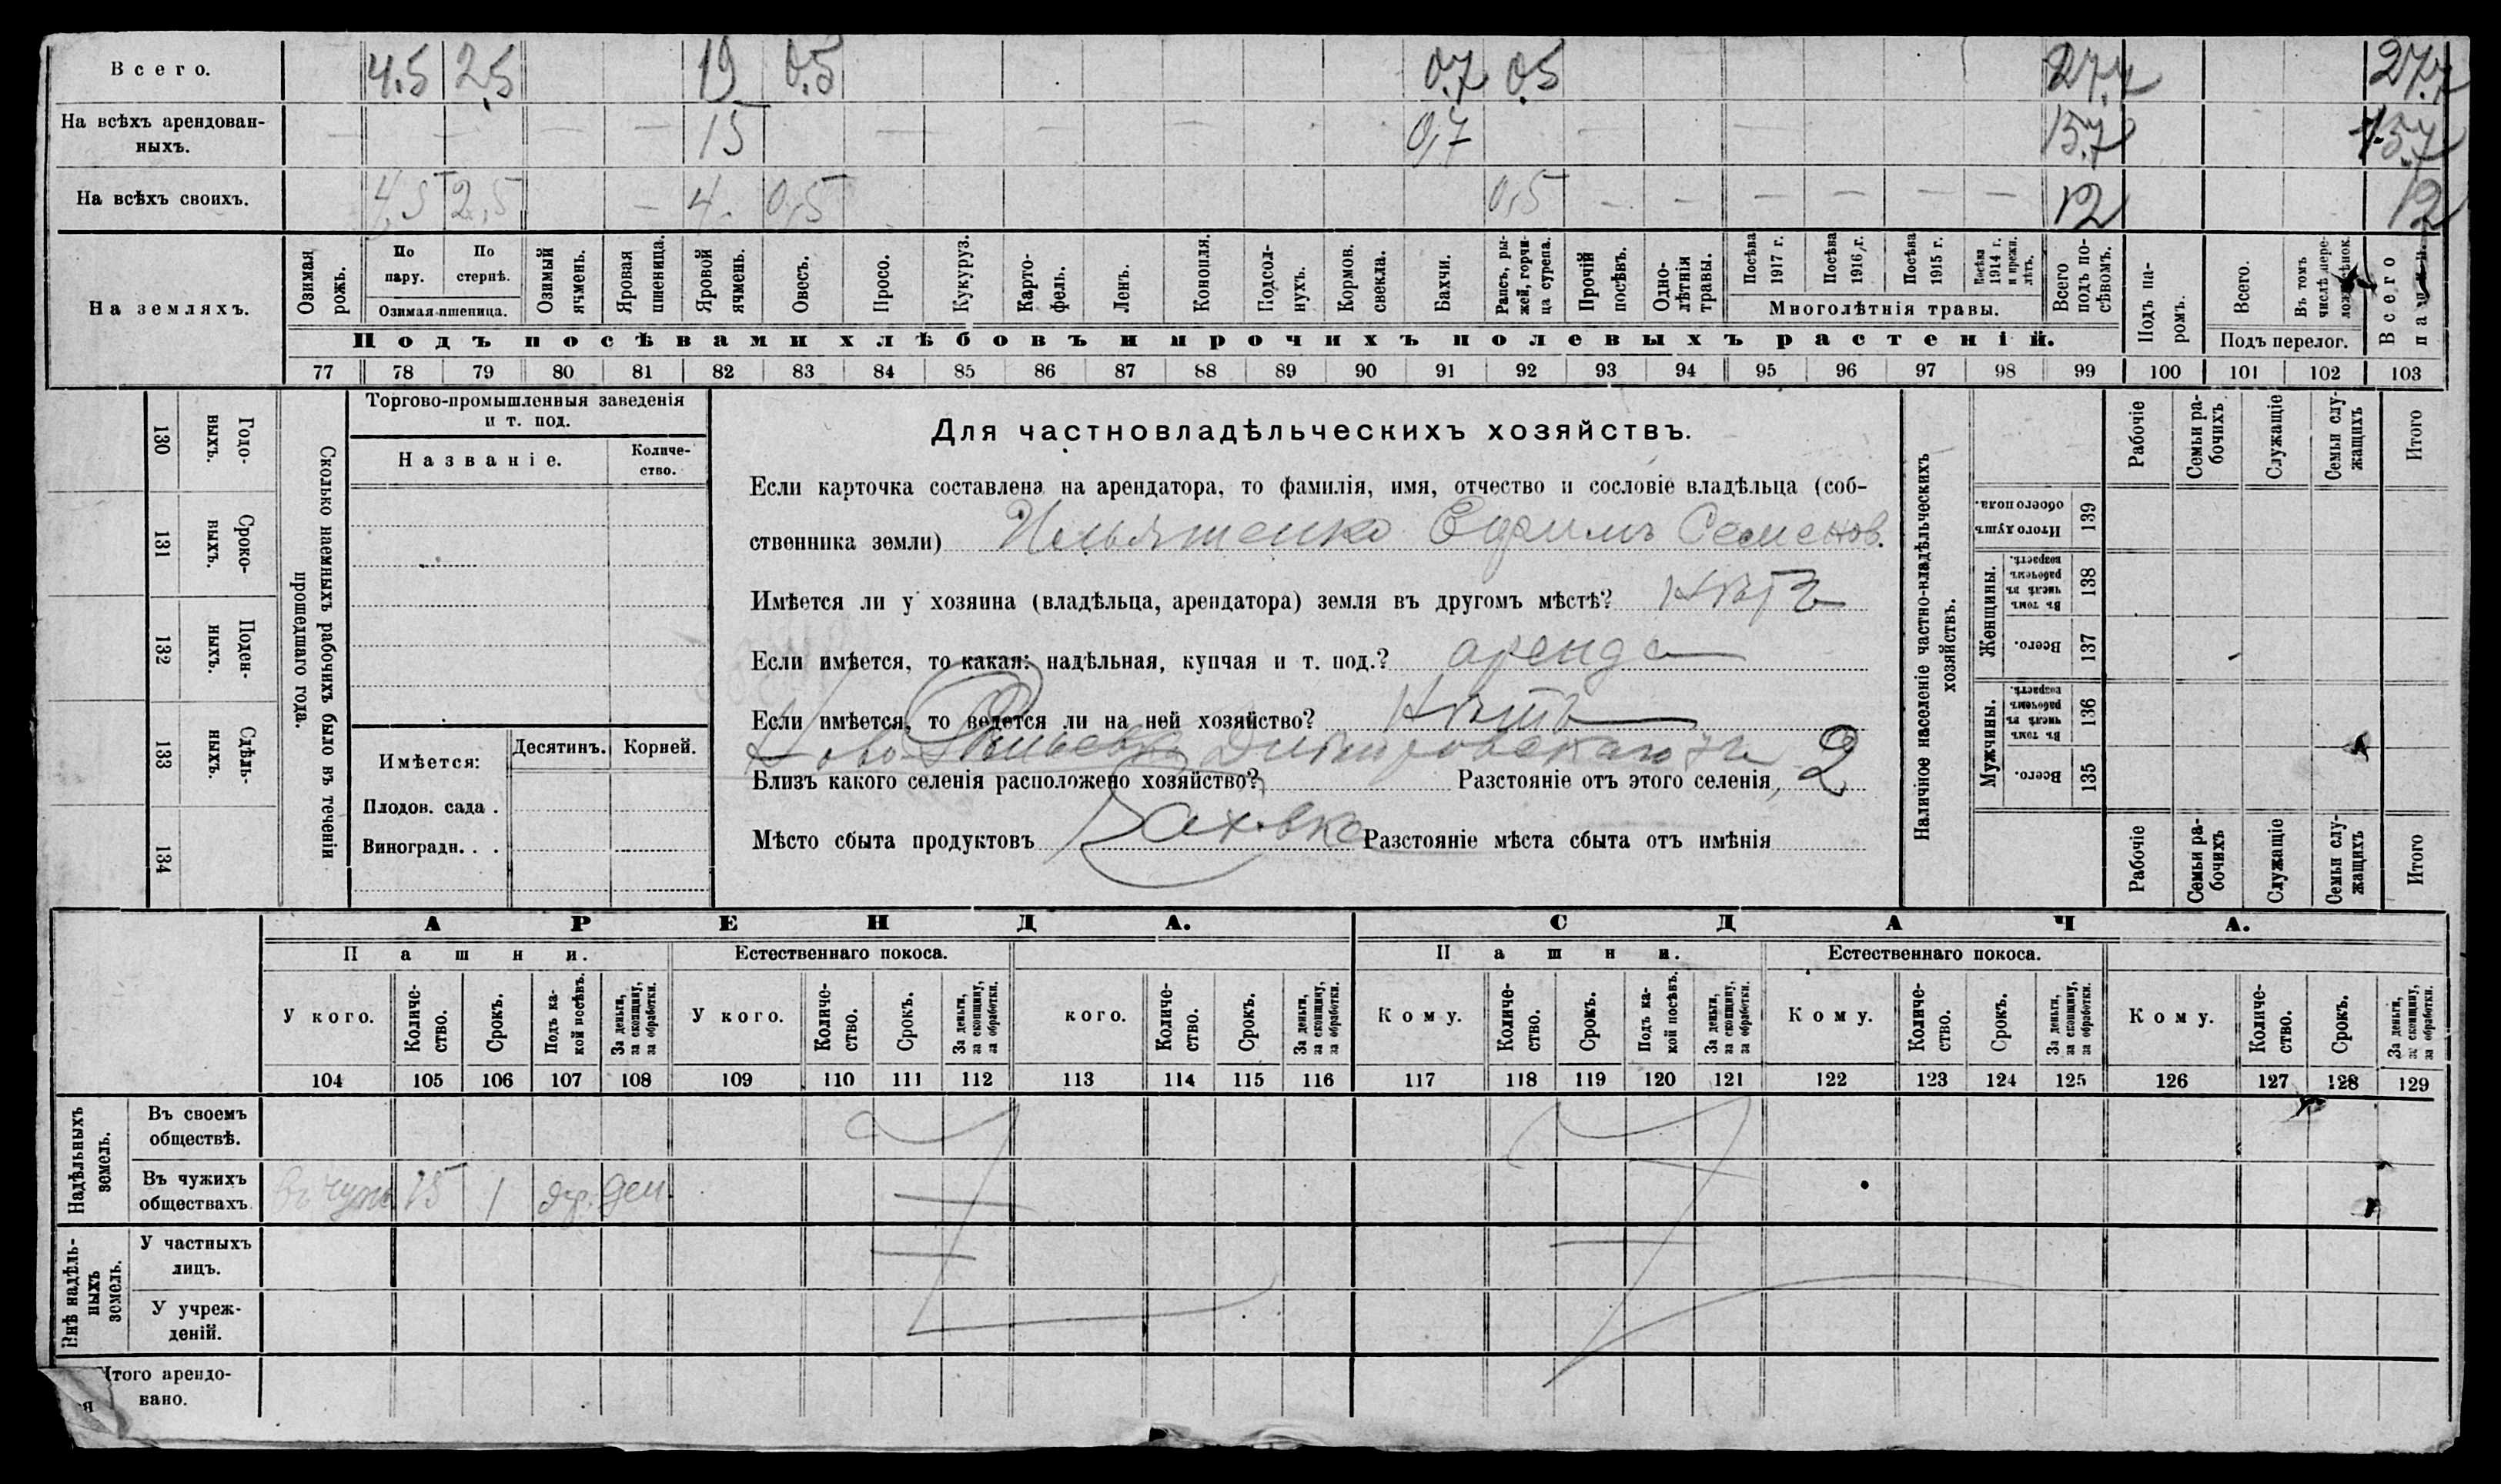 Всего. 4.5 2,5 19 0.5 0.7 0.5 27.7 27.7
На всѣхъ арендован-
ныхъ. — — — — 15 — — 0,7 — — 15.7 15.7
На всѣхъ своихъ. 4,5 2,5 — 4. 0,5 0,5 — — — — — — 12 12
На земляхъ.
Озимая рожь.
По пару.
По стернѣ.
Озимая пшеница.
Озимый ячмень.
Яровая пшеница.
Яровой ячмень.
Овесъ.
Просо.
Кукуруз.
Карто-
фель.
Ленъ.
Конопля.
Подсол-
нухъ.
Кормов. свекла.
Бахчи.
Рапсъ, ры-
жей, горчи-
ца сурепа.
Прочій посѣвъ.
Одно-
лѣтнія травы.
Посѣва 1917 г.
Посѣва 1916 г.
Посѣва 1915 г.
Посѣва 1914 г. и прежн. лѣтъ.
Многолѣтнія травы.
Всего подъ по-
сѣвомъ.
Подъ па-
ромъ.
Всего.
Въ томъ числѣ пере-
Подъ перелог.
Всего
Подъ посѣвами хлѣбовъ и прочихъ полевыхъ растеній.
77 78 79 80 81 82 83 84 85 86 87 88 89 90 91 92 93 94 95 96 97 98 99 100 101 102 103
130 Годо-
выхъ.
131 Сроко-
выхъ.
132 Поден-
ныхъ.
133 Сдѣль-
ныхъ.
134
Сколько наемныхъ рабочихъ было въ теченіи
прошедшаго года.
Торгово-промышленныя заведенія
и т. под.
Названіе. Количе-
ство.
Имѣется: Десятинъ. Корней.
Плодов. сада .
Виноградн. . .
Для частновладѣльческихъ хозяйствъ.
Если карточка составлена на арендатора, то фамилія, имя, отчество и сословіе владѣльца (соб-
ственника земли) Ильяшенко Ефимъ Семенов.
Имѣется ли у хозяина (владѣльца, арендатора) земля въ другомъ мѣстѣ? Нѣтъ
Если имѣется, то какая: надѣльная, купчая и т. под.? аренда
Если имѣется, то ведется ли на ней хозяйство? Нѣтъ
Близъ какого селенія расположено хозяйство? Разстояніе отъ этого селенія, 2
Мѣсто сбыта продуктовъ Каховка Разстояніе мѣста сбыта отъ имѣнія
Наличное населеніе частно-владѣльческихъ
хозяйствъ.
Рабочіе
Семьи ра-
бочихъ
Служащіе
Семьи слу-
жащихъ
Итого
Итого душъ обоего пола. 139
Женщины.
Въ томъ числѣ въ рабочемъ возрастѣ. 138
Всего. 137
Мужчины.
Въ томъ числѣ въ рабочемъ возрастѣ. 136
Всего. 135
Рабочіе
Семьи ра-
бочихъ
Служащіе
Семьи слу-
жащихъ
Итого
АРЕНДА. СДАЧА.
Пашни. Естественнаго покоса. Пашни. Естественнаго покоса.
У кого. Количе-
ство. Срокъ. Подъ ка-
кой посѣвъ. За деньги, за скопщину, за обработки.
У кого. Количе-
ство. Срокъ. За деньги, за скопщину, за обработки.
кого. Количе-
ство. Срокъ. За деньги, за скопщину, за обработки.
Кому. Количе-
ство. Срокъ. Подъ ка-
кой посѣвъ. За деньги, за скопщину, за обработки.
Кому. Количе-
ство. Срокъ. За деньги, за скопщину, за обработки.
Кому. Количе-
ство. Срокъ. За деньги, за скопщину, за обработки.
104 105 106 107 108 109 110 111 112 113 114 115 116 117 118 119 120 121 122 123 124 125 126 127 128 129
Надѣльныхъ
земель.
Въ своемъ
обществѣ.
Въ чужихъ
обществахъ. 15 1 яр. ден.
Внѣ надѣль-
ныхъ
земель.
У частныхъ
лицъ.
У учреж-
деній.
Итого арендо-
вано.